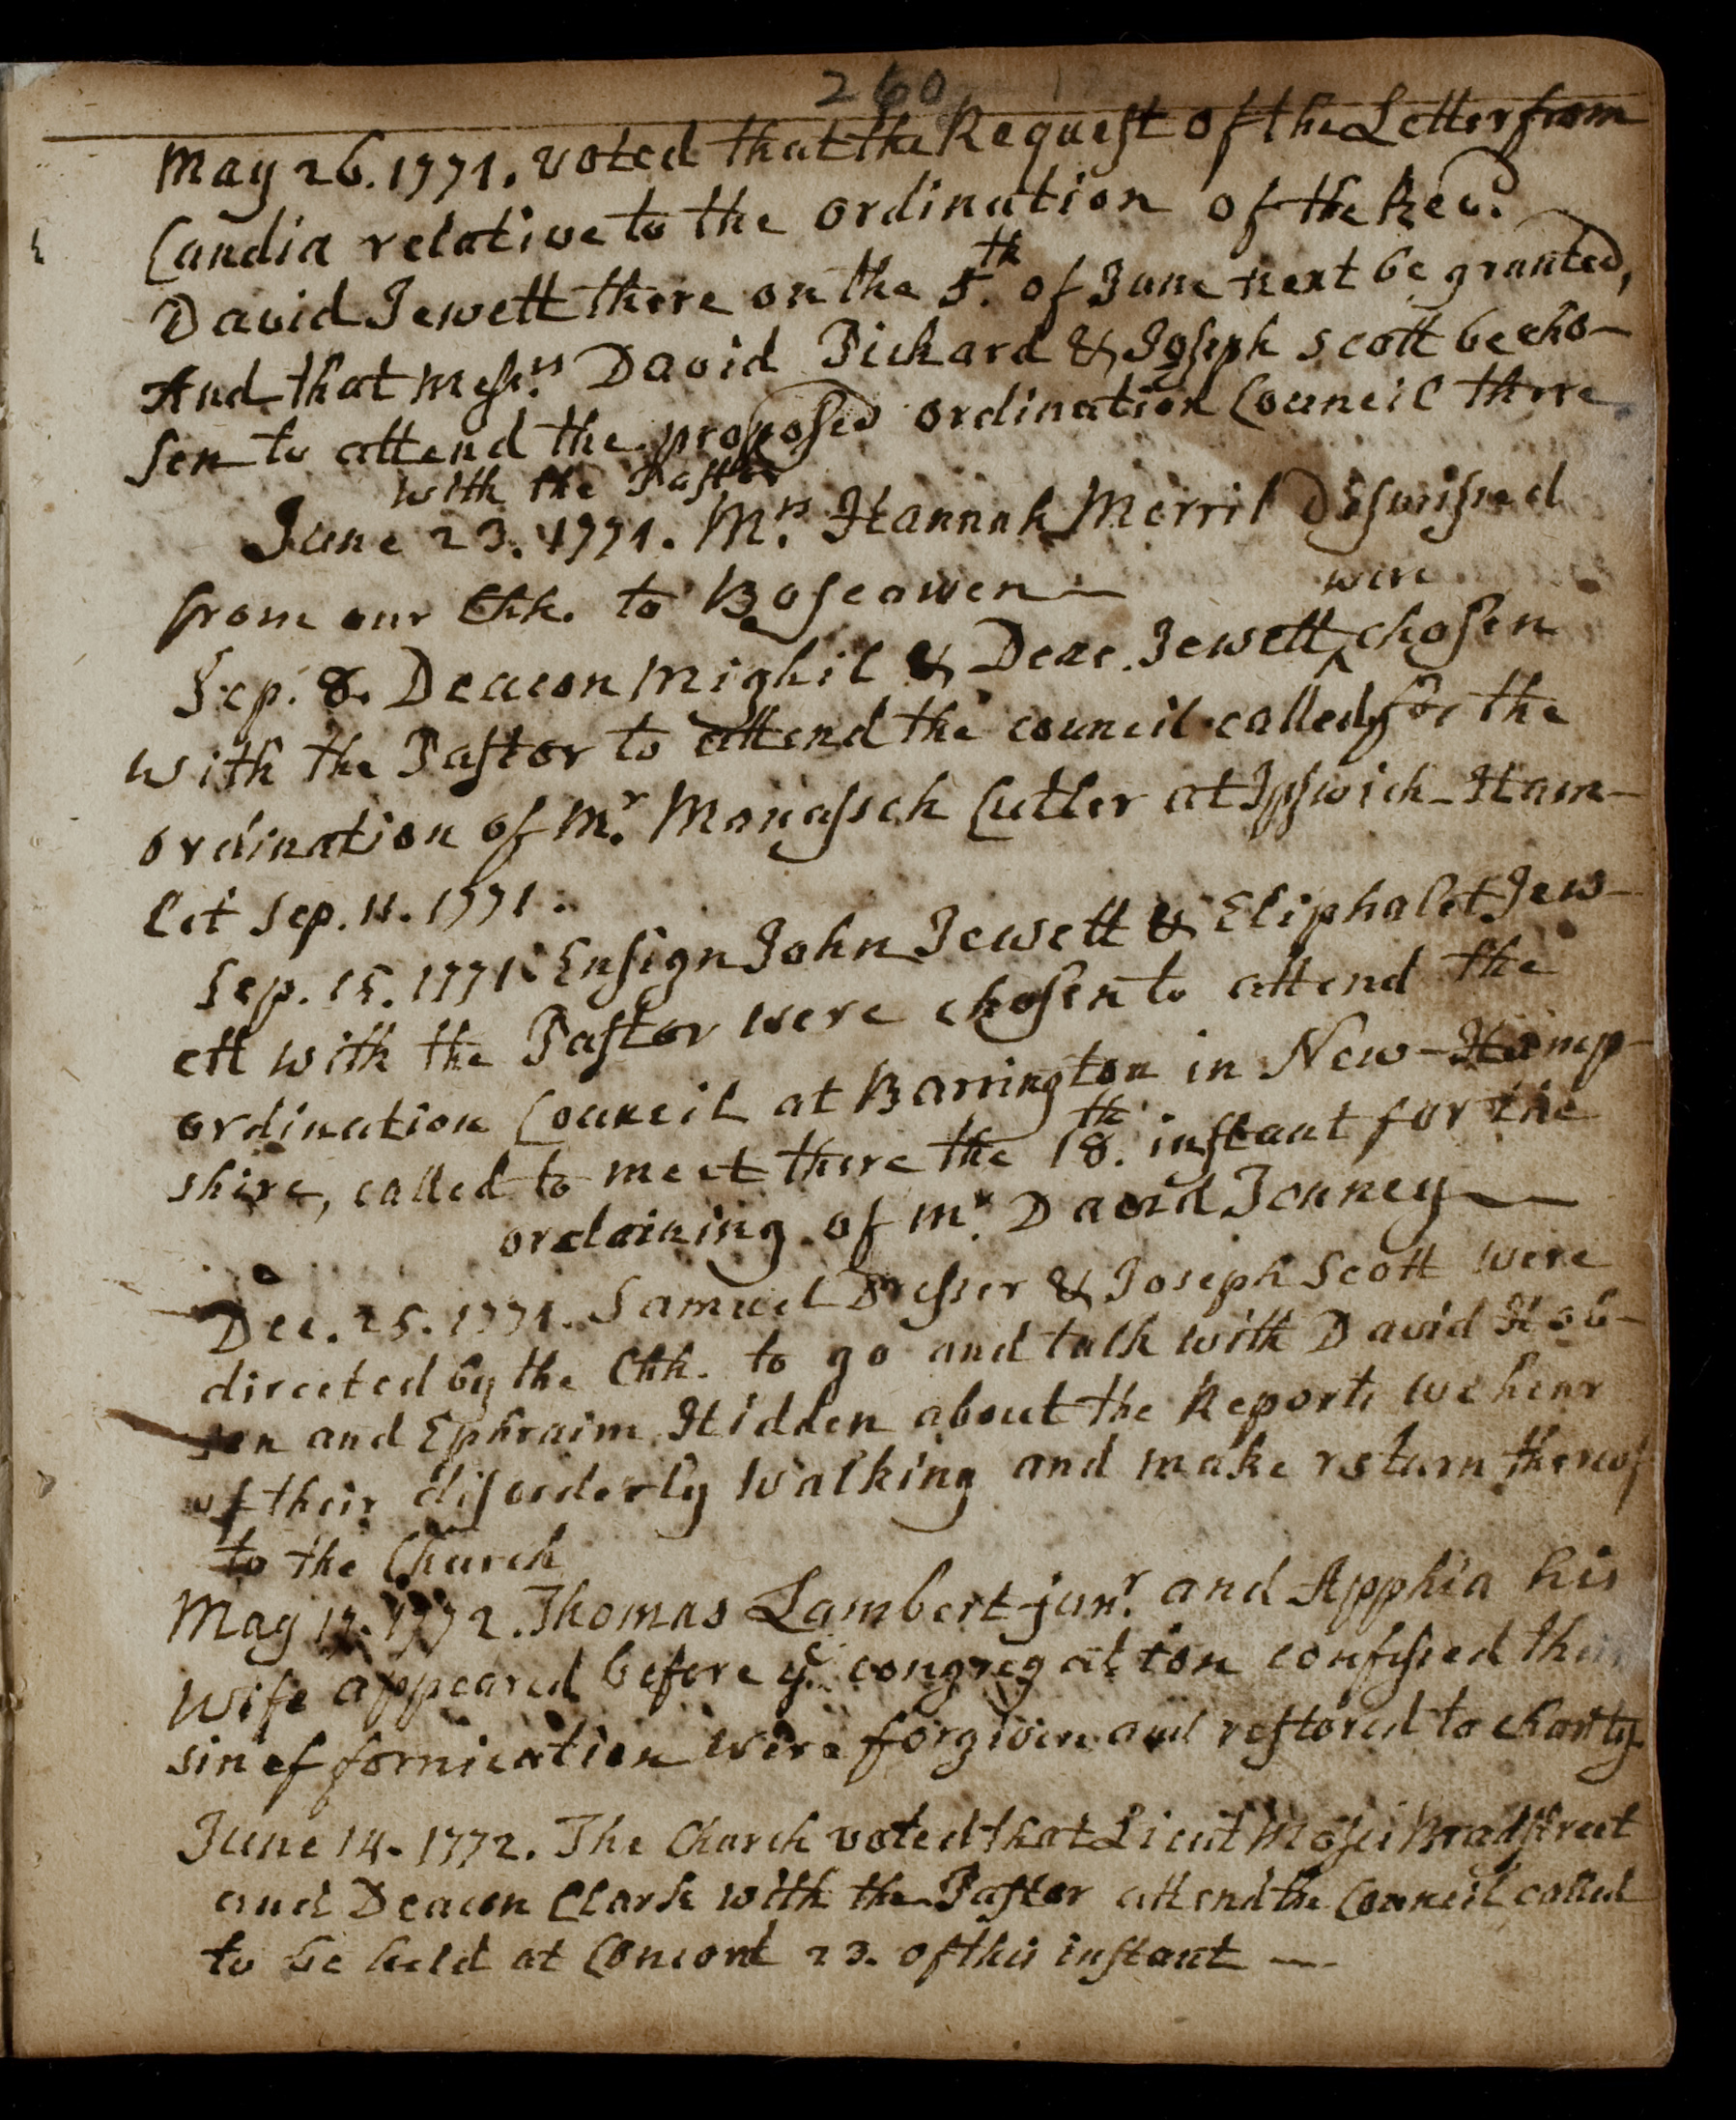 260
May 26. 1771. voted that the Request of the Letter from
Candia relative to the ordination of the Revd.
David Jewett there on the 5th. of June next be granted,
And that Messrs. David Pickard & Joseph Scott be cho-
sen to attend the proposed ordination Council there
with the Pastor
June 23. 1771. Mrs. Hannah Merril Dismissed
from our Chh. to Boscawen —
were
Sep. 8. Deacon Mighil & Deac. Jewett ‸ chosen
with the Pastor to attend the council called for the
ordination of Mr. Manasseh Cutler at Ipswich-Ham-
let Sep. 11. 1771.
Sep. 15. 1771. Ensign John Jewett & Eliphalet Jew-
ett with the Pastor were chosen to attend the
ordination Council at Barrington in New-Hamp-
shire, called to meet there the 18th. instant for the
ordaining of Mr. David Tenney —
Dec. 25. 1771. Samuel Dresser & Joseph Scott were
directed by the Chh. to go and talk with David Hob-
son and Ephraim Hidden about the Reports we hear
of their disorderly walking and make return thereof
to the Church
May 17. 1772. Thomas Lambert junr. and Apphia his
wife appeared before ye. congregation confessed their
sin of fornication were forgiven and restored to charity.
June 14. 1772. The Church voted that Lieut Moses Bradstreet
and Deacon Clark with the Pastor attend the Council called
to be held at Concord 23. of this instant —